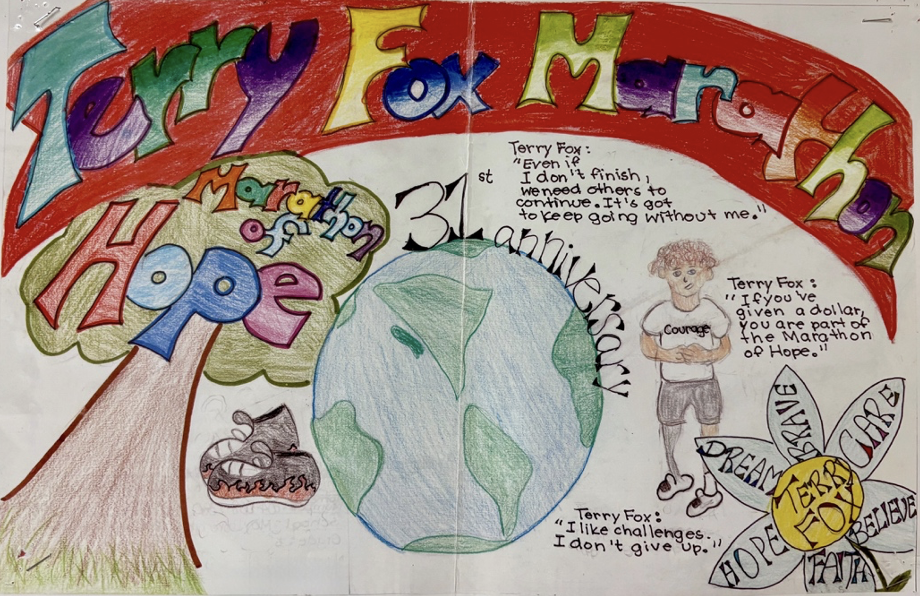 Terry Fox Marathon
Marathon
of
Hope
31st anniversary
Terry Fox:
"Even if
I don't finish,
we need others to
continue. It's got
to keep going without me."
Courage
Terry Fox:
"If you've
given a dollar,
you are part of
the Marathon
of Hope."
Terry Fox:
"I like challenges.
I don't give up."
TERRY
FOX
DREAM
BRAVE
CARE
BELIEVE
FAITH
HOPE